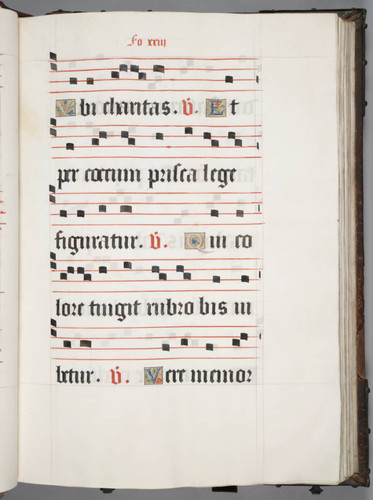 Fo xxiii
Vbi charitas. V. Et
per coccum prisca lege
figuratur. V. Qui co
lore tingit rubro bis iu
betur. V. Vere memor